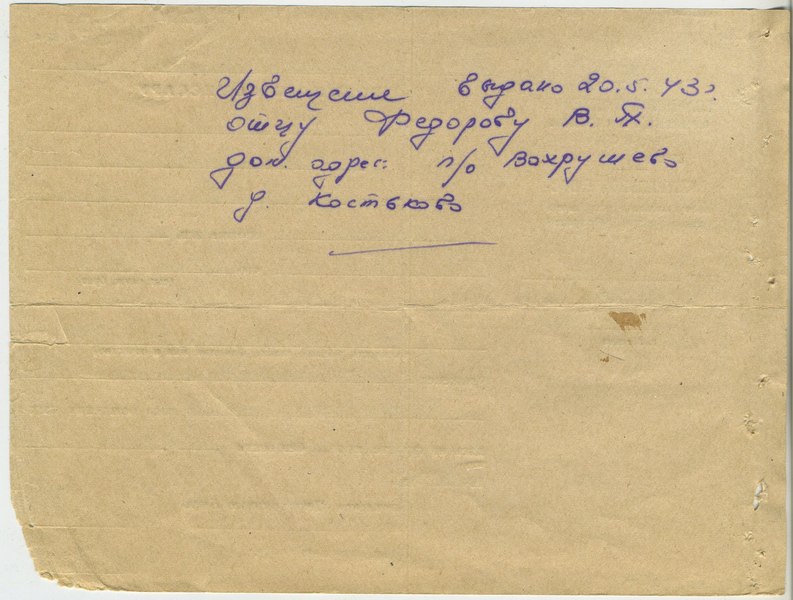 Извещение выдано 20.5.43г.
отцу Федорову В. П.
дом. адрес: п/о Вахрушево
д. Костьково